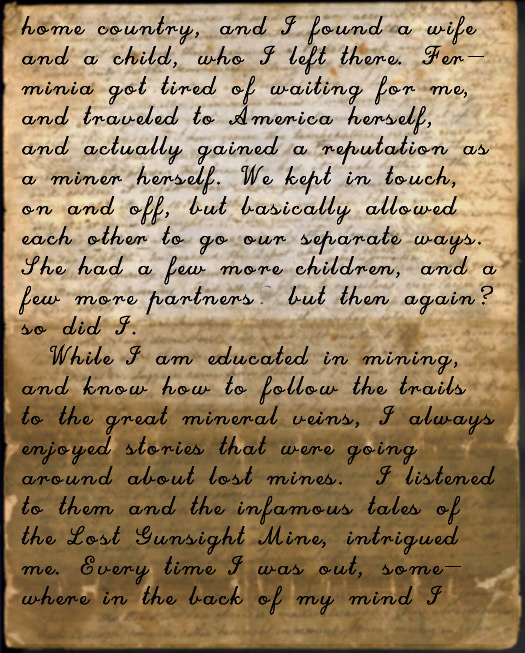 home country, and I found a wife
and a child, who I left there. Fer—
minia got tired of waiting for me,
and traveled to America herself,
and actually gained a reputation as
a miner herself. We kept in touch,
on and off, but basically allowed
each other to go our separate ways.
She had a few more children, and a
few more partners. but then again?
so did I.
While I am educated in mining,
and know how to follow the trails
to the great mineral veins, I always
enjoyed stories that were going
around about lost mines. I listened
to them and the infamous tales of
the Lost Gunsight Mine, intrigued
me. Every time I was out, some—
where in the back of my mind I